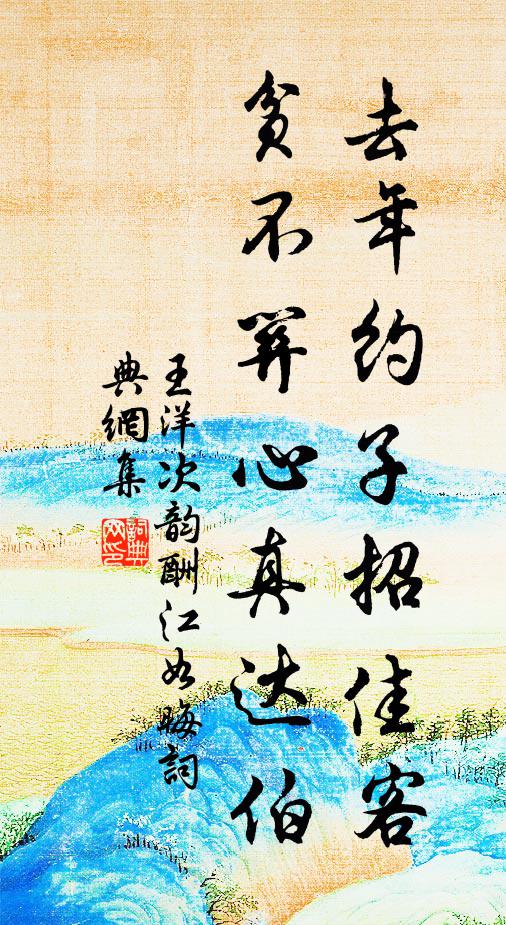 去年约子招佳客
贫不羿心真达伯
王洋次韵酬江如晦詞
典網集
詞典